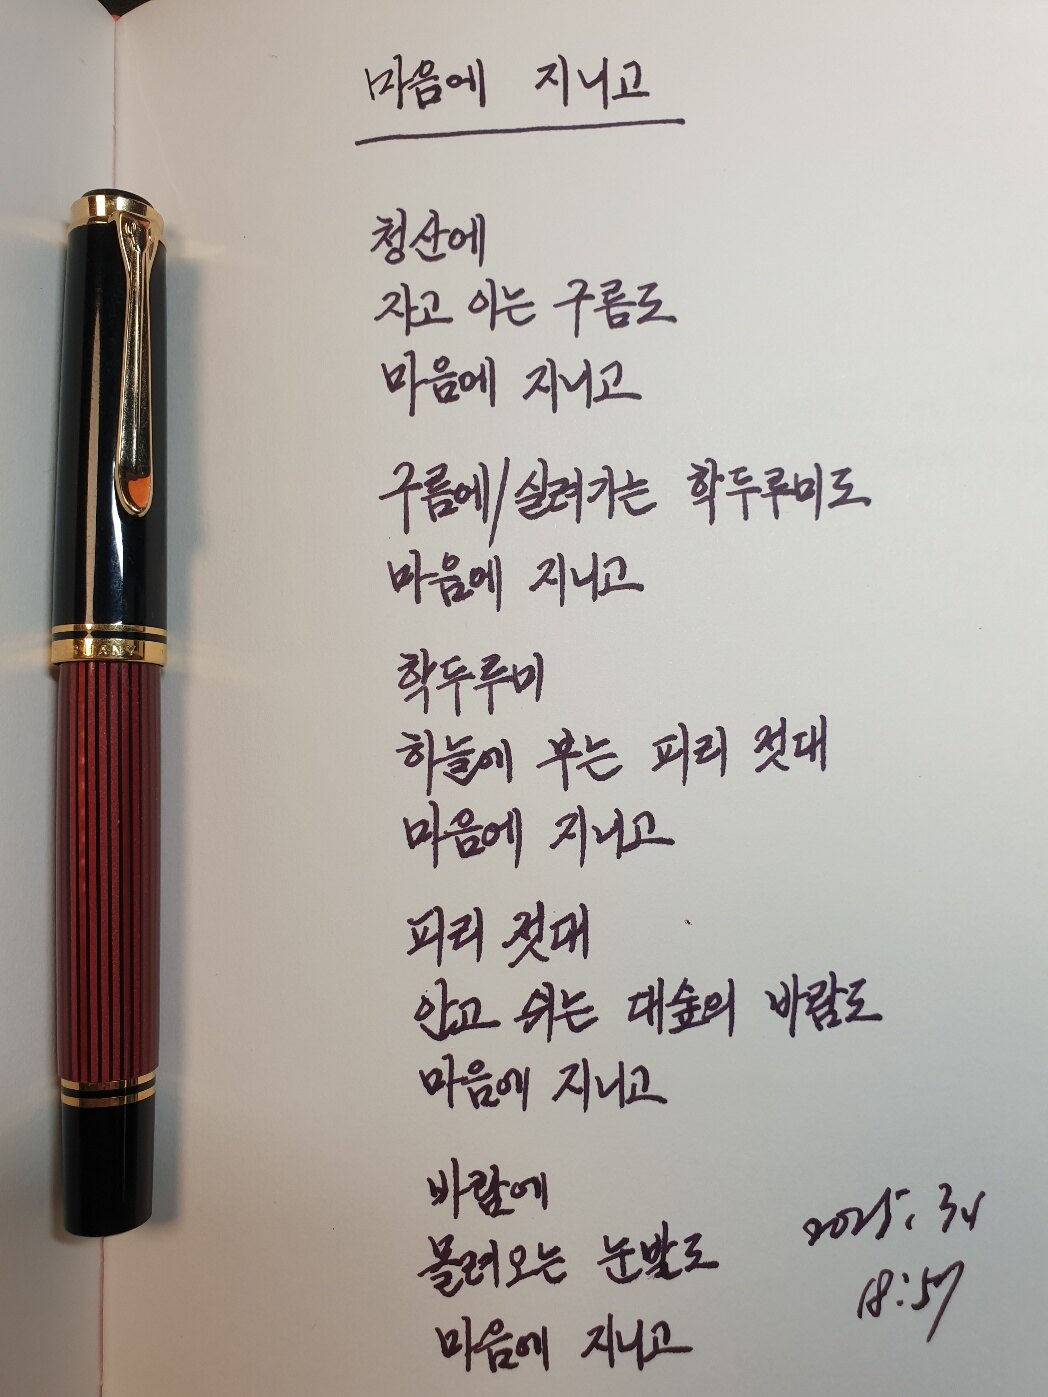 마음에 지니고
청산에
자고 이는 구름도
마음에 지니고
구름에/실려가는 학두루미도
마음에 지니고
학두루미
하늘에 부는 피리 젓대
마음에 지니고
피리 젓대
안고 쉬는 대숲의 바람도
마음에 지니고
바람에
몰려오는 눈발도
마음에 지니고
2025.
18:57